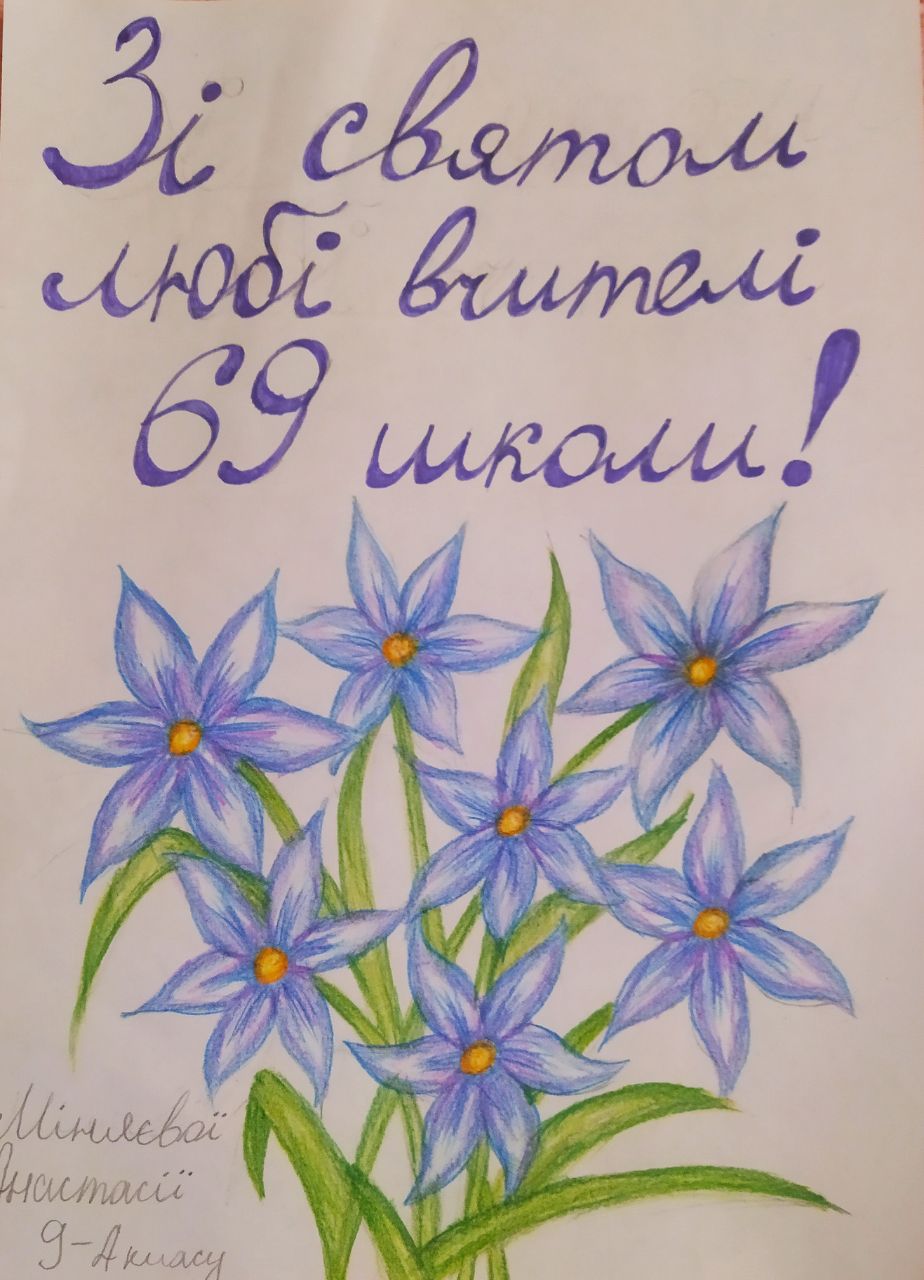 Зі святом
любі вчителі
69 школи!
Міняєвої
Анастасії
9-А класу